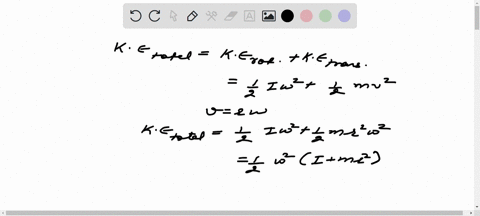 K.E total = K.E rot. + K.E trans.
= 1/2 Iω² + 1/2 mv²
v = rω
K.E total = 1/2 Iω² + 1/2 mr²ω²
= 1/2 ω² (I + mr²)